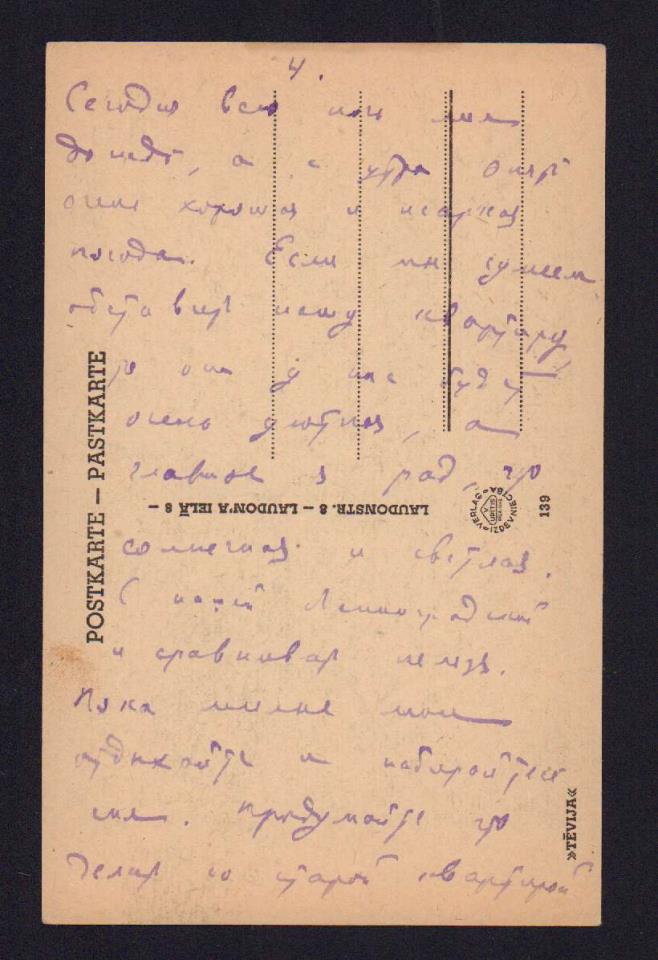 4.
Сегодня всю ночь шел
дождь, а с утра опять
очень хорошая и жаркая
погода. Если мы сумеем
обставить нашу квартиру,
то она у нас будет
очень уютная, а
главное я рад, что
солнечная и светлая.
С нашей Ленинградской
и сравнивать нельзя.
Пока милые мои
отдыхайте и набирайтесь
сил. Продумайте что
делать со старой квартирой
POSTKARTE — PASTKARTE
LAUDONSTR. 8 — LAUDON'A IELĀ 8 —
VERLAG IZDEVNIECĪBA
139
»TĒVIJA«